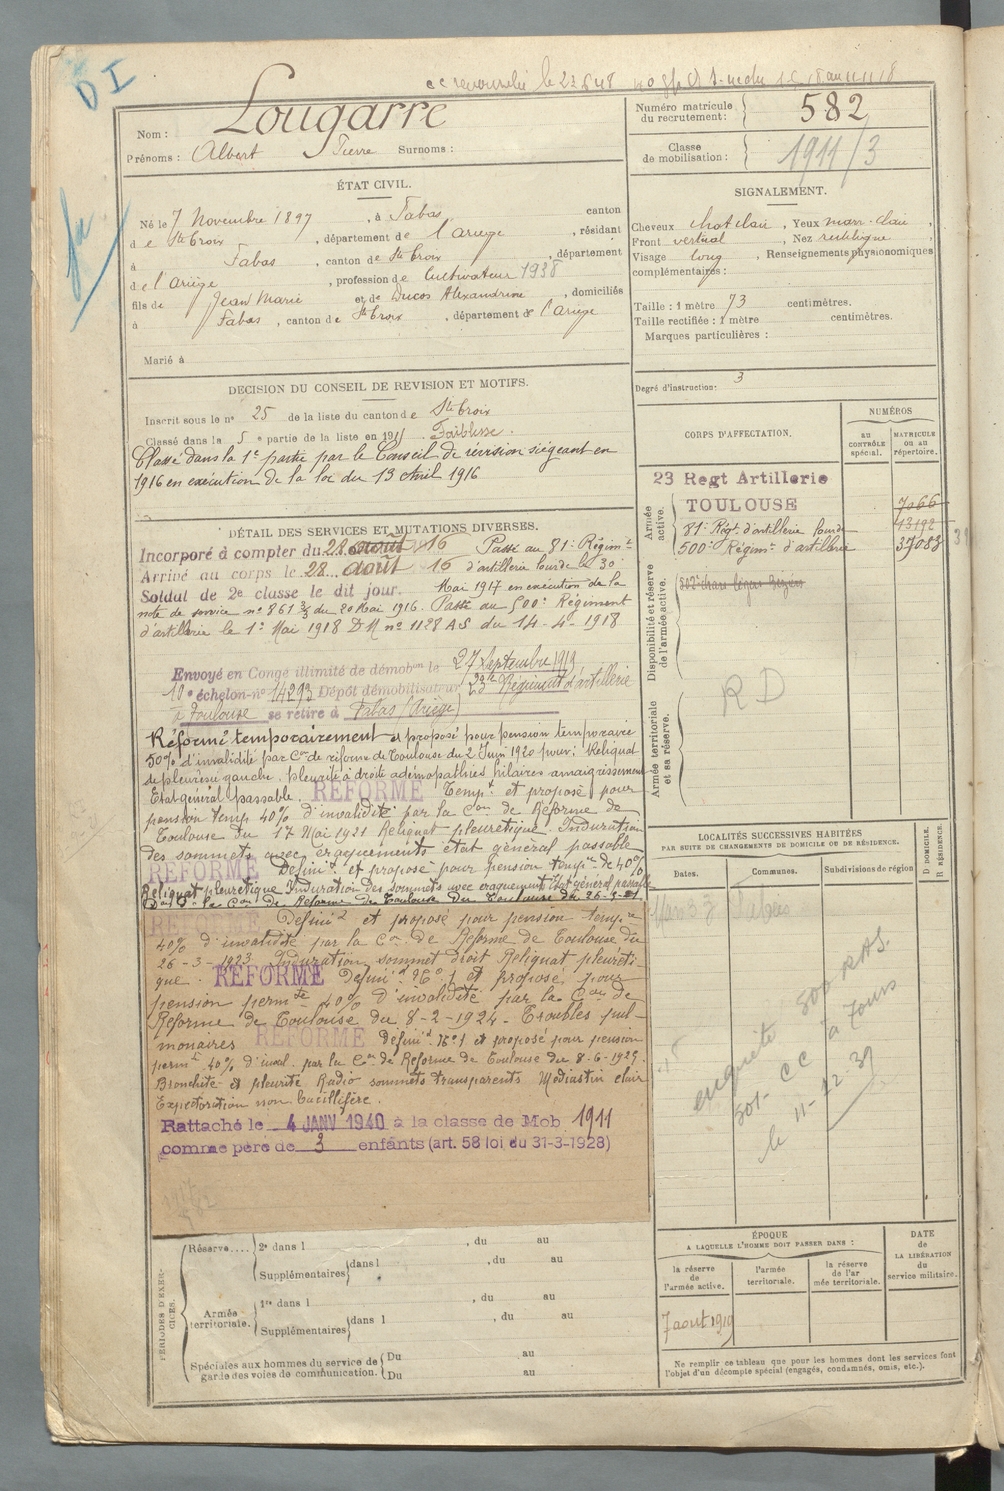 D I
cc renouvelée le
Numéro matricule du recrutement : 582
Nom : Lougarre
Prénoms : Albert Pierre Surnoms :
Classe de mobilisation : 1911/3
ÉTAT CIVIL.
Né le 7 Novembre 1897, à Fabas canton
de Ste Croix, département de l'Ariège, résidant
à Fabas, canton de Ste Croix, département
de l'Ariège, profession de Cultivateur 1938
fils de Jean Marie et de Ducos Alexandrine, domiciliés
à Fabas, canton de Ste Croix, département de l'Ariège
Marié à
SIGNALEMENT.
Cheveux chat clair, Yeux marr-clair,
Front vertical, Nez rectiligne,
Visage long, Renseignements physionomiques
complémentaires :
Taille : 1 mètre 73 centimètres.
Taille rectifiée : 1 mètre centimètres.
Marques particulières :
Degré d'instruction : 3
DECISION DU CONSEIL DE REVISION ET MOTIFS.
Inscrit sous le n° 25 de la liste du canton de Ste Croix
Classé dans la 5 e partie de la liste en 191 Faiblesse.
Classé dans la 1e partie par le Conseil de révision siégeant en
1916 en exécution de la loi du 13 Avril 1916
DÉTAIL DES SERVICES ET MUTATIONS DIVERSES.
Incorporé à compter du 28 août 16 Passé au 81e Régimt
Arrivé au corps le 28 août 16 d'artillerie lourde le 30
Soldat de 2e classe le dit jour. Mai 1917 en exécution de la
note de service n° 861 3/3 du 20 Mai 1916. Passé au 500e Régiment
d'artillerie le 1er Mai 1918 DM n° 1128 AS du 14-4-1918
Envoyé en Congé illimité de démobon le 27 Septembre 1919
10e échelon-n° 14293 Dépôt démobilisateur 23e Régiment d'artillerie
à Toulouse se retire à Fabas (Ariège)
Réformé temporairement et proposé pour pension temporaire
50% d'invalidité par Con de réforme de Toulouse du 2 Juin 1920 pour : Reliquat
de pleurésie gauche. pleurite à droite adénopathies hilaires amaigrissement
Etat général passable. REFORME Tempt et proposé pour
pension temp 40% d'invalidité par la Con de Réforme de
Toulouse du 17 Mai 1921 Reliquat pleurétique. Induration
des sommets avec craquements état général passable
REFORME Définit et proposé pour pension tempre de 40%
Reliquat pleurétique Induration des sommets avec craquements Etat général passable
la Con de Réforme de Toulouse
REFORME Définit et proposé pour pension tempre
40% d'invalidité par la Con de Réforme de Toulouse du
26-3-1923 Induration sommet droit Reliquat pleuréti-
que. REFORME Définit N° 1 et proposé pour
pension permte 40% d'invalidité par la Con de
Réforme de Toulouse du 8-2-1924. Troubles pul-
monaires REFORME Définit N° 1 et proposé pour pension
permte 40% d'inval. par la Con de Réforme de Toulouse du 8-6-1929.
Bronchite et pleurite Radio sommets transparents Médiastin clair
Expectoration non bacillifère.
Rattaché le 4 JANV 1940 à la classe de Mob 1911
comme père de 3 enfants (art. 58 loi du 31-3-1928)
CORPS D'AFFECTATION.
NUMÉROS
AU CONTRÔLE spécial.
MATRICULE OU AU répertoire.
Armée active.
23 Regt Artillerie
TOULOUSE 7066
81e Régt d'artillerie lourde 43192
500e Régimt d'artillerie 37083
Disponibilité et réserve de l'armée active.
Armée territoriale et sa réserve.
R D
LOCALITÉS SUCCESSIVES HABITÉES
PAR SUITE DE CHANGEMENTS DE DOMICILE OU DE RÉSIDENCE.
Dates. Communes. Subdivisions de région
D DOMICILE. R RÉSIDENCE.
enquête 500 RAS.
501- CC à Tours
le 11-12-39
PÉRIODES D'EXERCICES.
Réserve.... 2e dans l , du au
Supplémentaires dans l , du au
Armée territoriale. 1re dans l , du au
Supplémentaires dans l , du au
Spéciales aux hommes du service de garde des voies de communication. Du au
Du au
ÉPOQUE
A LAQUELLE L'HOMME DOIT PASSER DANS :
la réserve de l'armée active.
l'armée territoriale.
la réserve de l'armée territoriale.
DATE de LA LIBÉRATION du service militaire.
7 aout 1919
Ne remplir ce tableau que pour les hommes dont les services font
l'objet d'un décompte spécial (engagés, condamnés, omis, etc.).